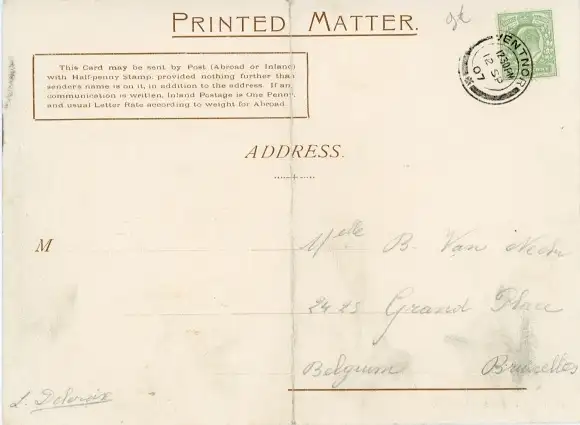 PRINTED MATTER.
gt
VENTNOR
12.30PM
12 SP
07
This Card may be sent by Post (Abroad or Inland)
with Half-penny Stamp, provided nothing further than
senders name is on it, in addition to the address. If any
communication is written, Inland Postage is One Penny,
and usual Letter Rate according to weight for Abroad
ADDRESS.
M
Melle B. Van Neck
24 25 Grand Place
Belgium Bruxelles
L. Delvoix